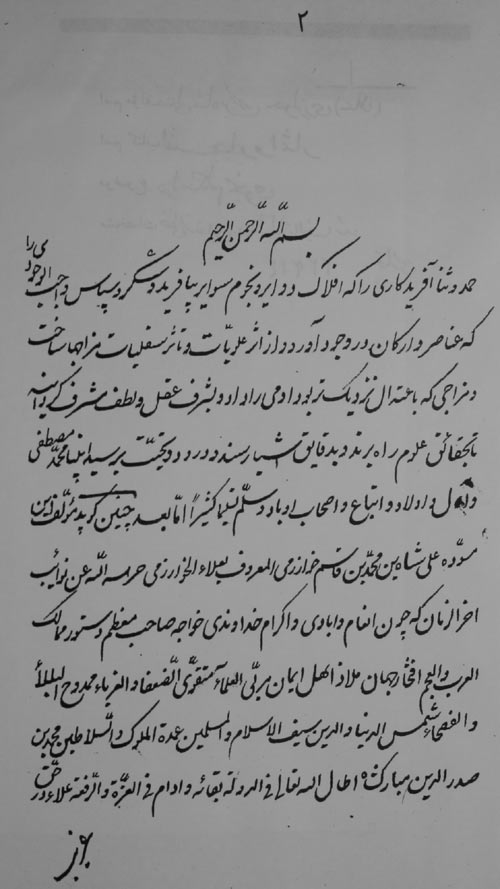 ۲
بسم الله الرحمن الرحیم
حمد و ثنا آفریدکاری را که افلاک دوایر و نجوم سوایر بیافرید و شکر و سپاس واجب الوجودی را
که عناصر و ارکان در وجود آورد و از اثر علویات و تاثر سفلیات مزاجها ساخت
و مزاجی که باعتدال نزدیک تر بود ادمی را داد و بشرف عقل و لطف مشرف کردانید
تا بحقائق علوم راه برند و بدقایق اشیا رسند و درود و تحیّت بر سید انبیا محمّد مصطفی
و اولاد و اتباع و اصحاب او باد و سلّم تسلیما کثیراً امّا بعد چنین کوید مؤلّف این
مسوّده علی شاه بن محمّد بن قاسم خوارزمی المعروف بعلاء الخوارزمی حرسه الله عن نوائب
اخر الزمان که چون انعام و ایادی و اکرام خداوندی خواجه صاحب معظم دستور ممالک
العرب و العجم افتخار جهان ملاذ اهل ایمان مربّی العلمآء مقوّی الضعفا و الغرباء ممدوح البلغاء
و الفصحاء شمس الدنیا و الدین سیف الاسلام و المسلمین عمدة الملوک و السّلاطین محمد بن
صدر الدین مبارکشاه اطال الله تعالی فی الدولة بقائه و ادام فی العزّة و الرّفعة علاءه در حق